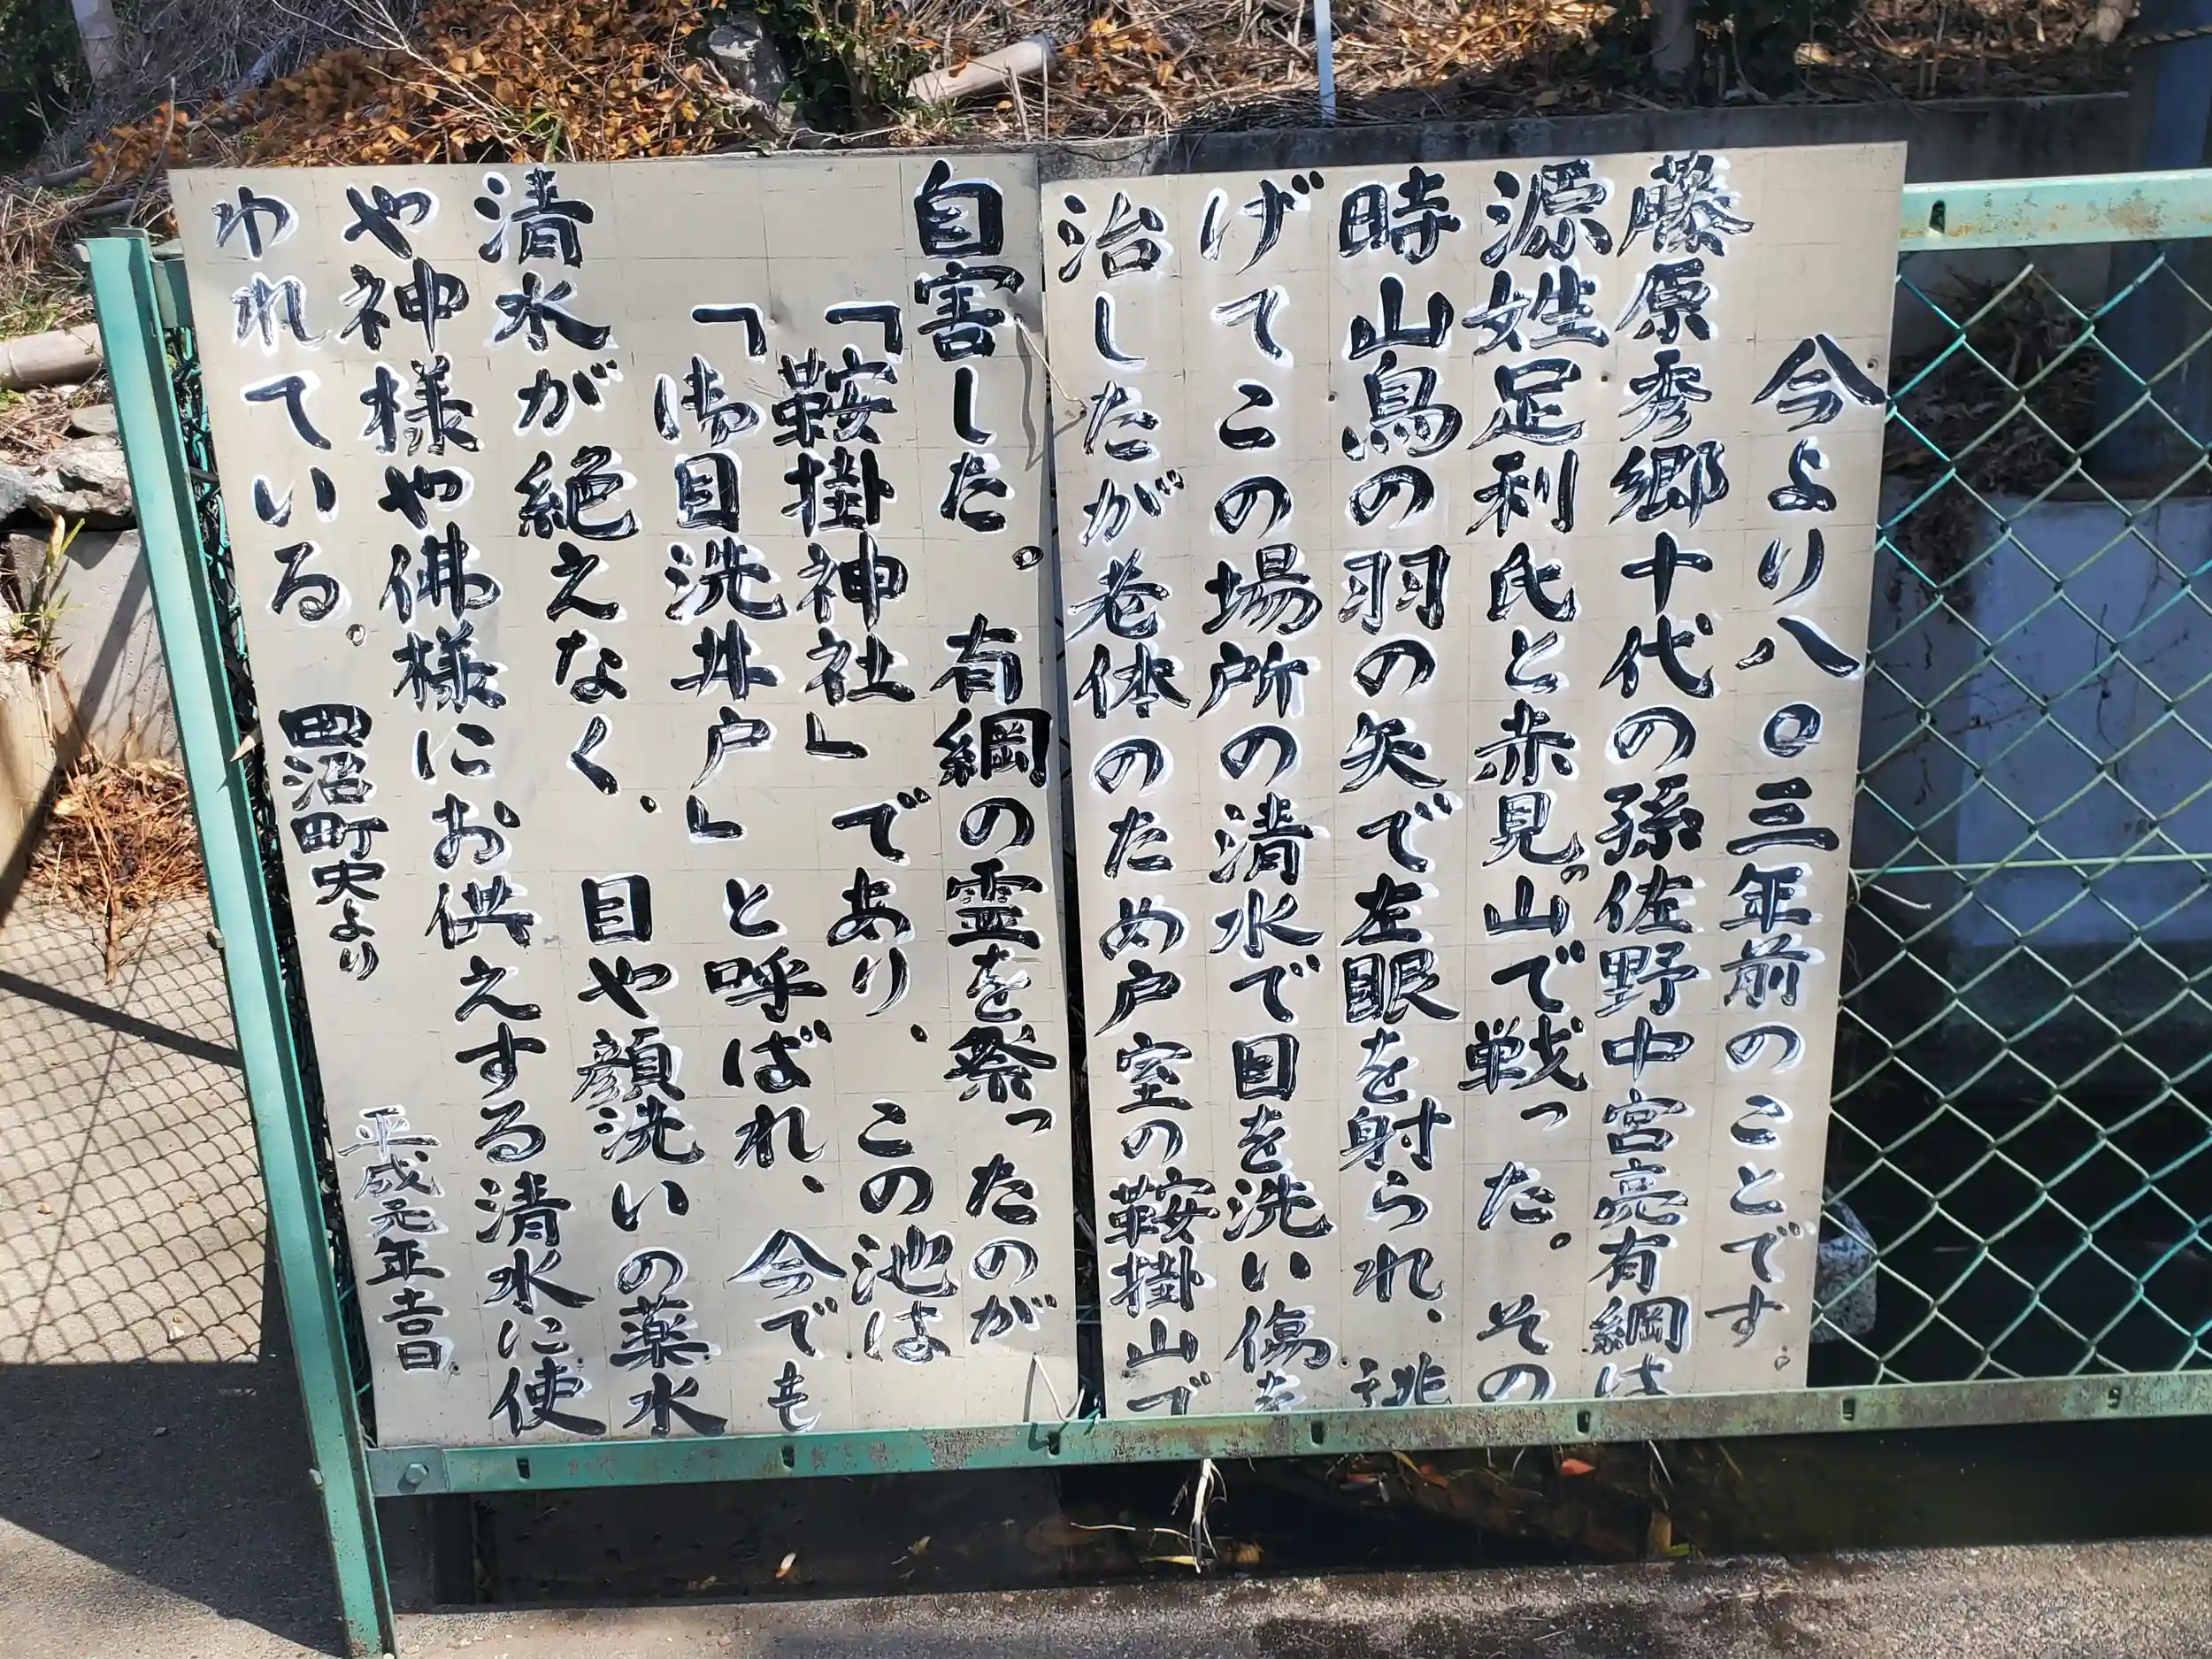 今より八〇三年前のことです。
藤原秀郷十代の孫佐野中宮亮有綱は
源姓足利氏と赤見の山で戦った。その
時山鳥の羽の矢で左眼を射られ、逃
げてこの場所の清水で目を洗い傷を
治したが老体のため戸室の鞍掛山で
自害した。有綱の霊を祭ったのが
「鞍掛神社」であり、この池は
「御目洗井戸」と呼ばれ、今でも
清水が絶えなく、目や顔洗いの薬水
や神様や佛様にお供えする清水に使
われている。
田沼町史より
平成元年吉日